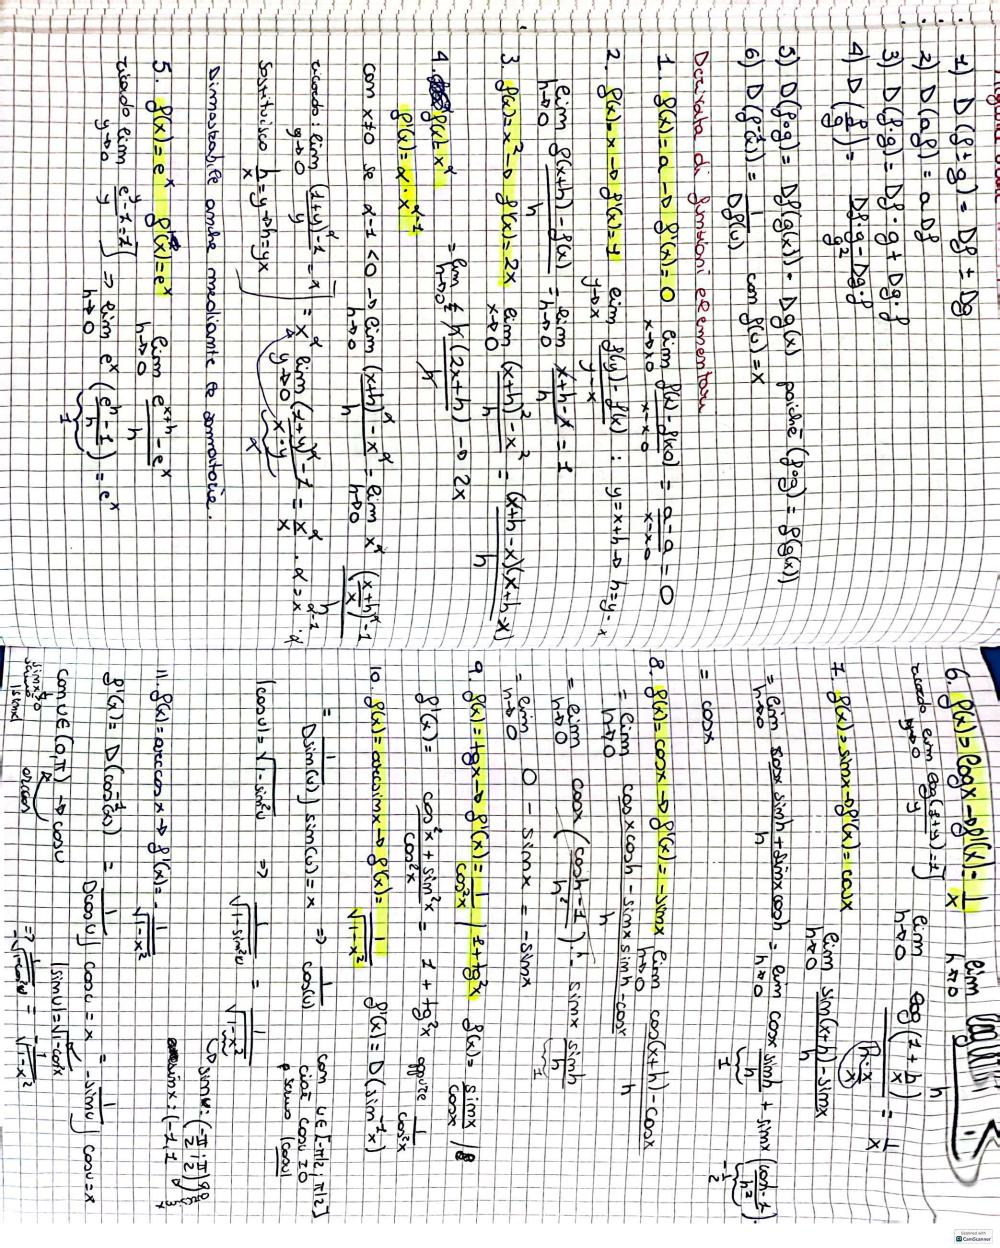 1) D(f±g) = Df ± Dg
2) D(af) = a Df
3) D(f·g) = Df·g + Dg·f
4) D(f/g) = Df·g - Dg·f / g²
5) D(f∘g) = Df(g(x)) · Dg(x) poiché (f∘g) = f(g(x))
6) D(f⁻¹(x)) = 1/Df(u) con f(u) = x
Derivata di funzioni elementari
1. f(x) = a → f'(x) = 0 lim x→x0 f(x) - f(x0) / x - x0 = a - a / x - x0 = 0
2. f(x) = x → f'(x) = 1 lim y→x f(y) - f(x) / y - x : y = x+h → h = y-x
lim h→0 f(x+h) - f(x) / h = lim h→0 x+h-x / h = 1
3. f(x) = x² → f'(x) = 2x lim x→0 (x+h)² - x² / h = (x+h-x)(x+h-x) / h
= lim h→0 h(2x+h) / h → 2x
4. f(x) = x^α
f'(x) = α·x^α-1
con x≠0 se α-1 < 0 → lim h→0 (x+h)^α - x^α / h = lim h→0 x^α (x+h / x)^α - 1 / h
ricordo: lim y→0 (1+y)^α - 1 / y = α ] = x^α lim y→0 (1+y)^α - 1 / x·y = x^α / x · α = x^α-1 · α
sostituisco h/x = y → h = yx
Dimostrabile anche mediante le sommatorie.
5. f(x) = e^x f'(x) = e^x lim h→0 e^x+h - e^x / h
ricordo lim y→0 e^y - 1 / y = 1 ] ⇒ lim h→0 e^x (e^h - 1 / h) = e^x
1
6. f(x) = log x → f'(x) = 1/x lim h→0
ricordo lim y→0 log(1+y) / y = 1 ] lim h→0 log(1 + h/x) / h·x / x = 1/x
7. f(x) = sin x → f'(x) = cos x lim h→0 sin(x+h) - sin x / h
= lim h→0 cos x sin h + sin x cos h / h = lim h→0 cos x sin h / h + sin x (cos h - 1 / h²)
1 -1/2
= cos x
8. f(x) = cos x → f'(x) = -sin x lim h→0 cos(x+h) - cos x / h
= lim h→0 cos x cos h - sin x sin h - cos x / h
= lim h→0 cos x (cos h - 1 / h²) - sin x sin h / h
= lim h→0 0 - sin x = -sin x
9. f(x) = tg x → f'(x) = 1/cos²x | 1 + tg²x f(x) = sin x / cos x
f'(x) = cos²x + sin²x / cos²x = 1 + tg²x oppure 1/cos²x
10. f(x) = arcsin x → f'(x) = 1/√1-x² f'(x) = D(sin⁻¹x)
= 1/D sin(u) ] sin(u) = x ⇒ 1/cos(u) con u ∈ [-π/2 ; π/2]
cioè cos u ≥ 0
|cos u| = √1 - sin²u ⇒ 1/√1 - sin²u = 1/√1-x²
11. f(x) = arccos x → f'(x) = - 1/√1-x²
f'(x) = D(cos⁻¹(x)) = 1/D cos u ] cos u = x = 1/-sin u ] cos u = x
con u ∈ (0, π) → cos u |sin u| = √1-cos²x
sin x ≥ 0
|sin x|
arccos
⇒ - 1/√1-cos²u = - 1/√1-x²
Scanned with
CamScanner